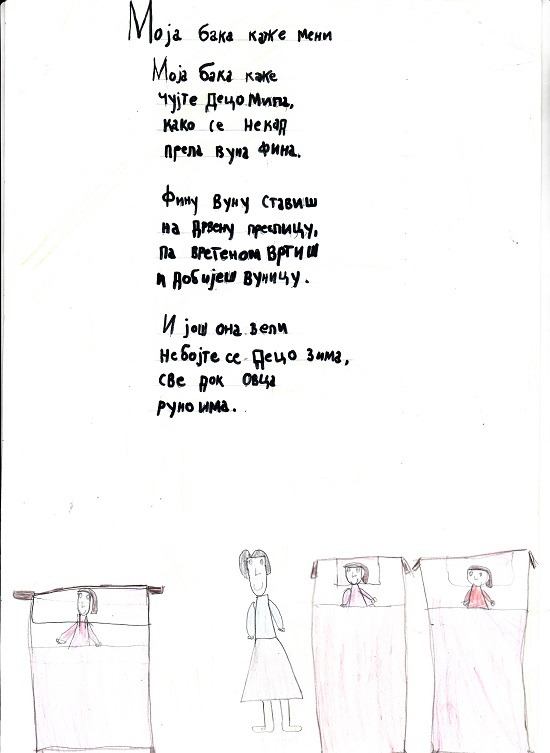 Моја бака каже мени
Моја бака каже
чујте децо мила,
како се некад
прела вуна фина.
Фину вуну ставиш
на дрвену преслицу,
па вретеном вртиш
и добијеш вуницу.
И још она вели
небојте се децо зима,
све док овца
руно има.